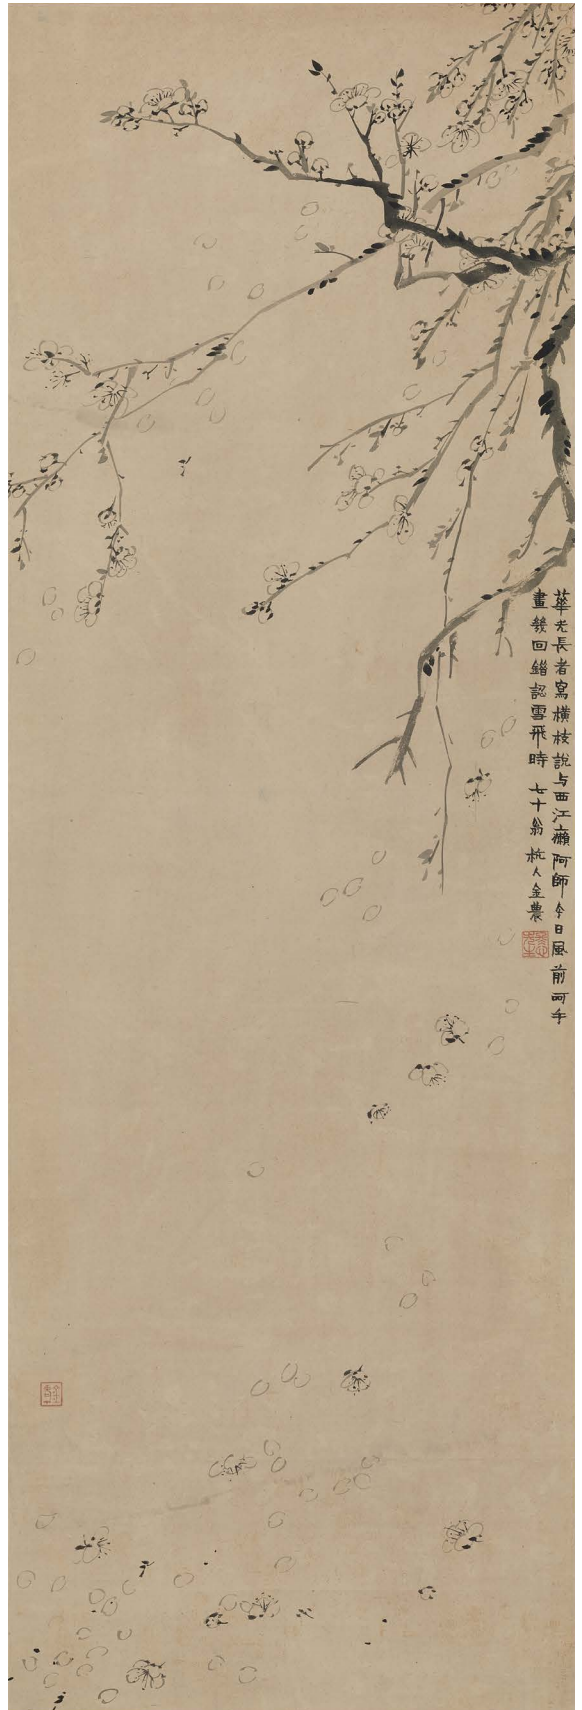 華光長者寫橫枝說与西江癩阿師今日風前呵手
畫幾回錯認雪飛時 七十翁杭人金農